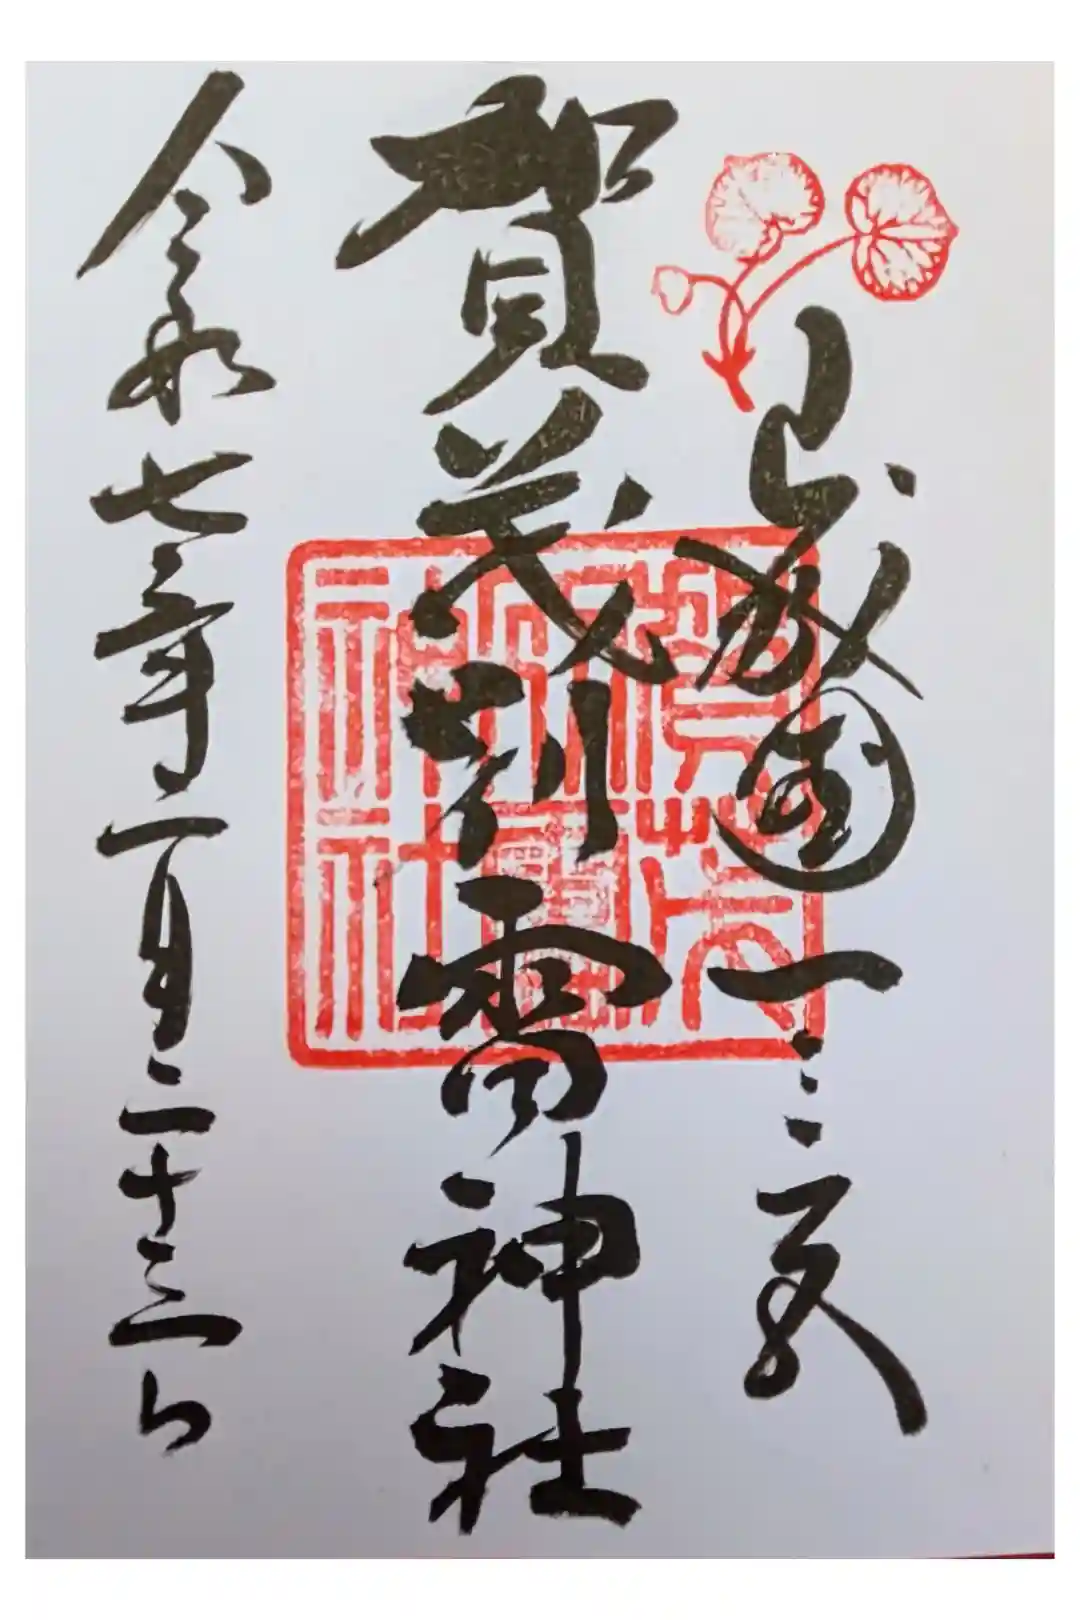 山城國一之宮
賀茂別雷神社
令和七年一月二十三日
賀茂別雷神社